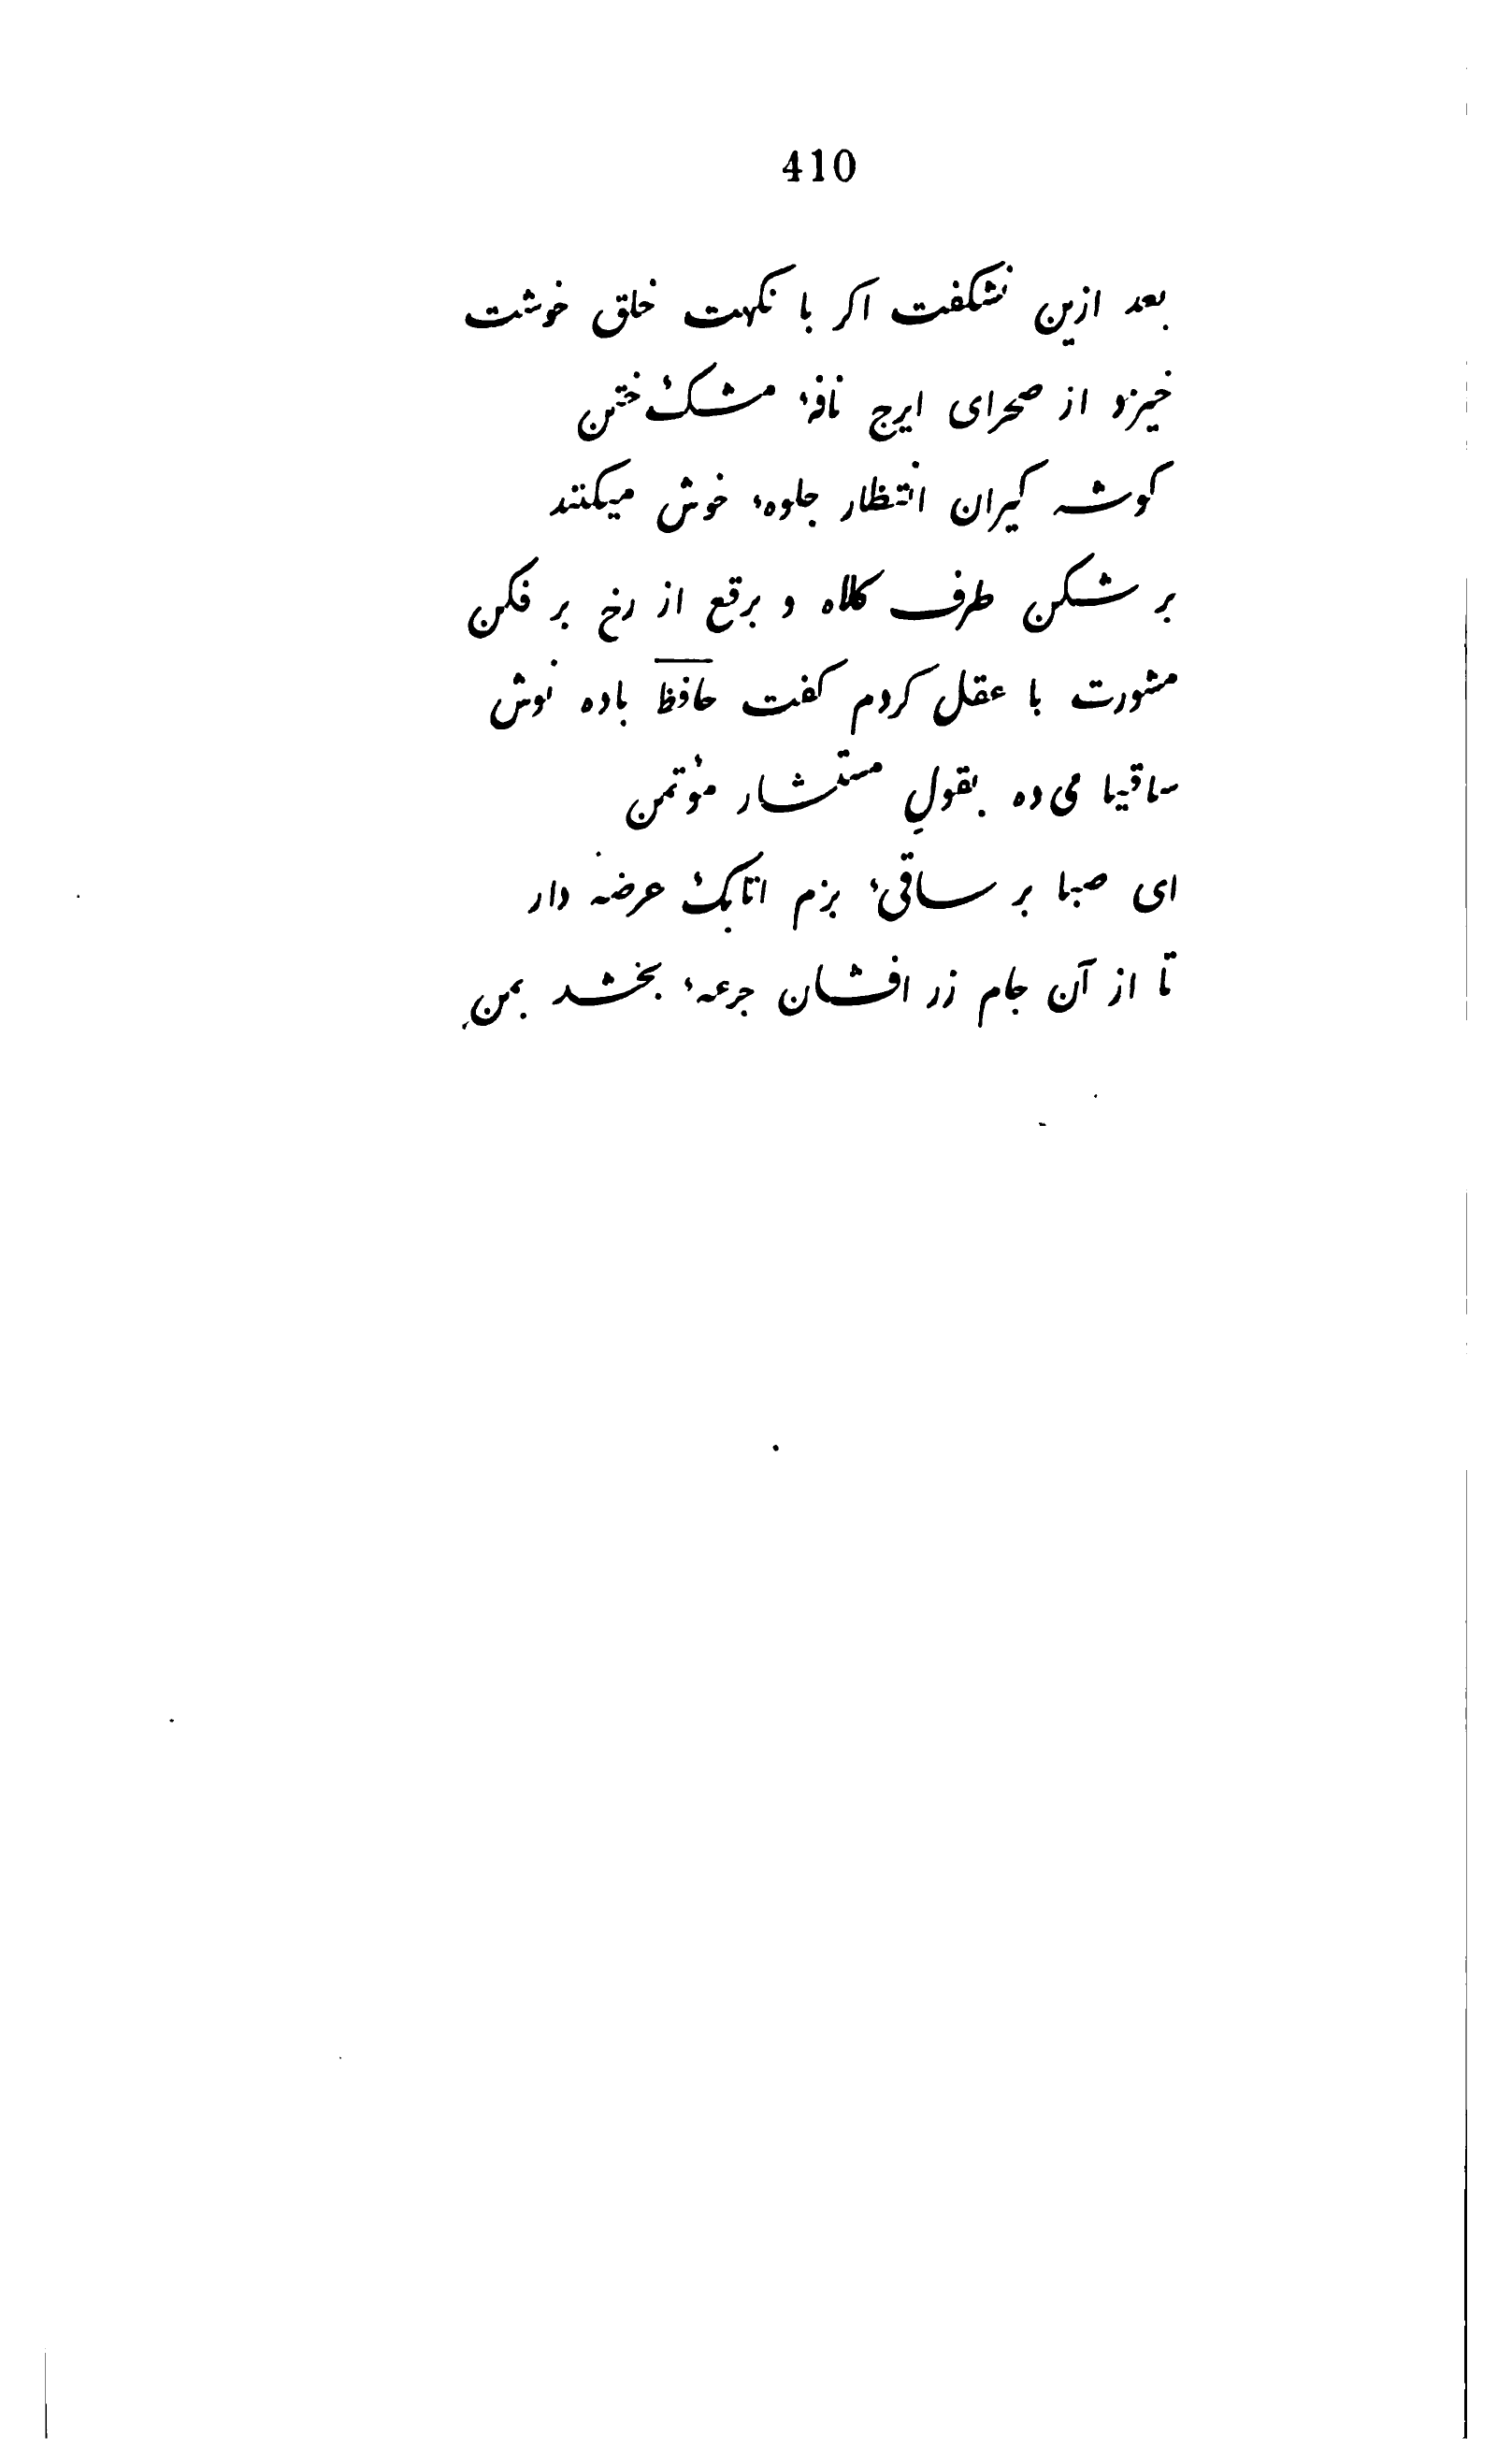 410
بعد ازین نشکفت اکر با نکهت خلق خوشت
خیزد از صحرای ایرج نافهٔ مشک ختن
کوشه کیران انتظار جلوهٔ خوش میکنند
بر شکن طرف کلاه و برقع از رخ بر فکن
مشورت با عقل کردم کفت حافظ باده نوش
ساقیا می ده بقولِ مستشار مؤتمن
ای صبا بر ساقیٔ بزم اتابک عرضه دار
تا از آن جام زر افشان جرعهٔ بخشد بمن